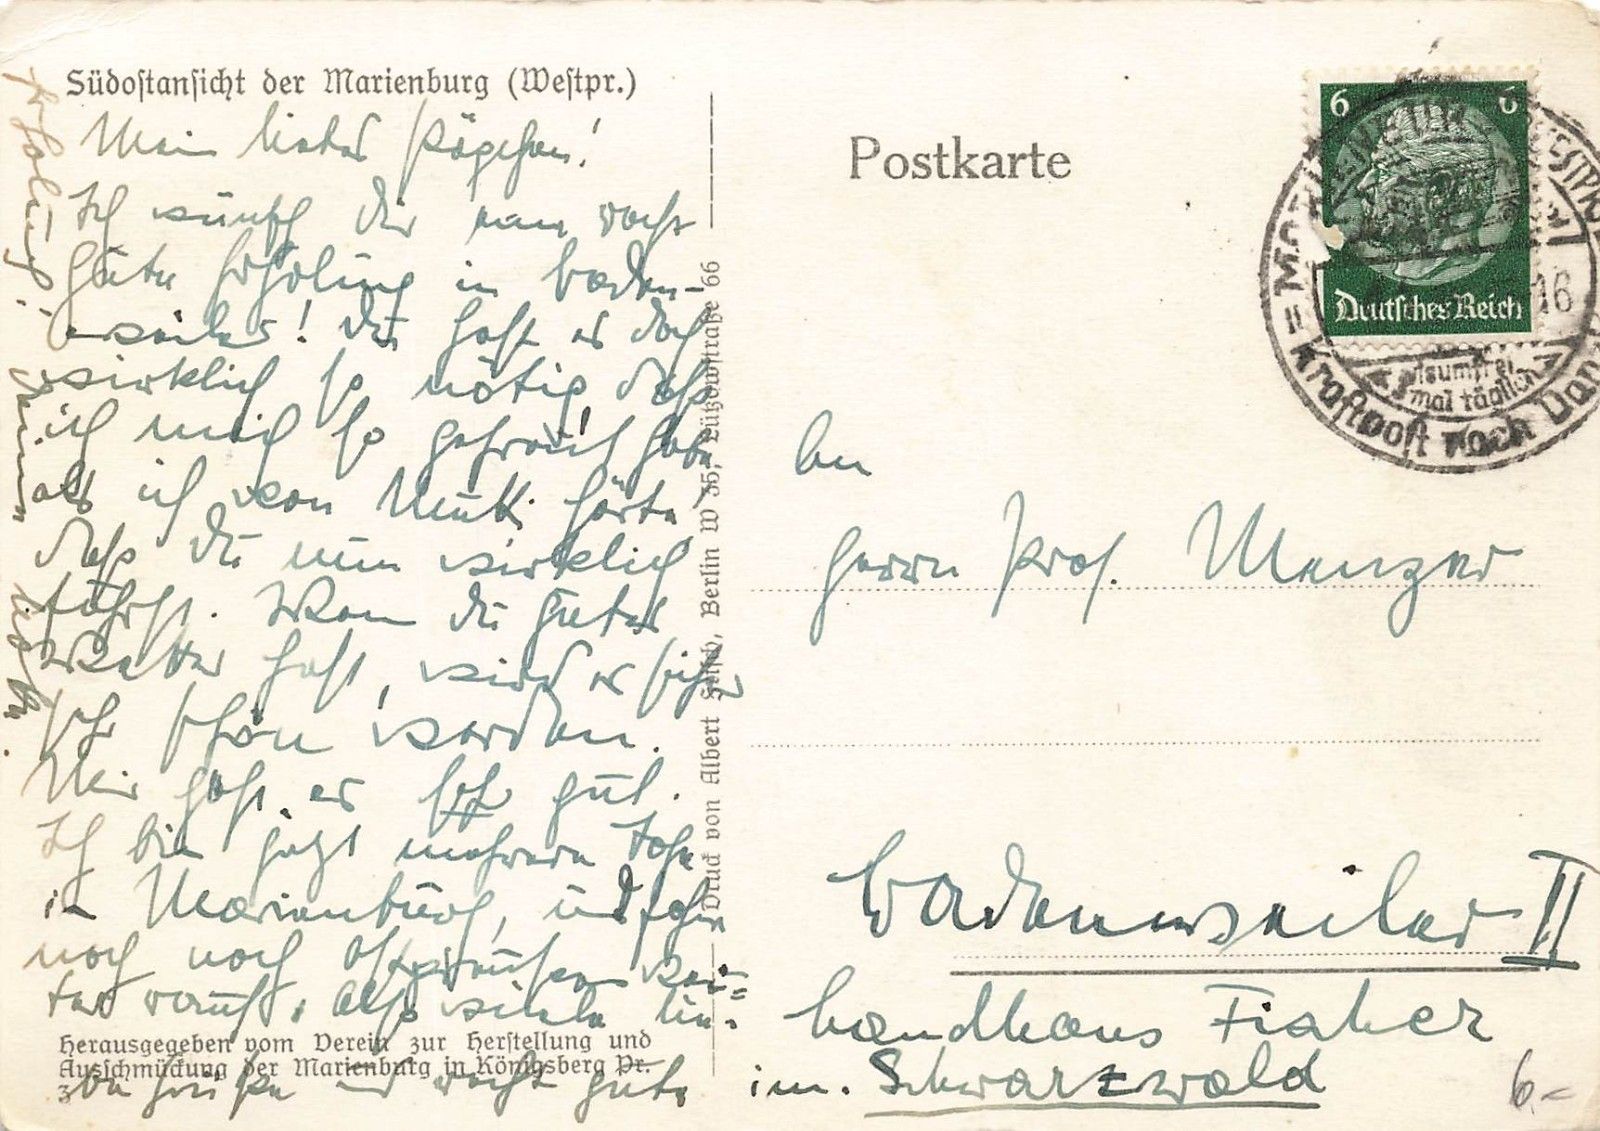 Südostansicht der Marienburg (Westpr.)
Mein liebes
Ich wünsch Dir nun recht
gute Erholung in Baden-
weiler! Du hast es doch
wirklich so nötig, daß
ich mich so gefreut habe
als ich von Mutti hörte
daß Du nun wirklich
fährst. Wenn Du gutes
Wetter hast, wird es sicher
sehr schön werden.
Mir geht es sehr gut.
Ich bin jetzt mehrere Tage
in Marienburg, und fahre
noch nach Ostpreußen wei=
ter rauf. Also viele lie-
be Grüße und recht gute
Erholung!
Deine
Herausgegeben vom Verein zur Herstellung und
Ausschmückung der Marienburg in Königsberg Pr.
3
Druck von Albert Frisch, Berlin W 35, Lützowstraße 66
Postkarte
6 6
Deutsches Reich
16
mal täglich
Kraftpost nach
An
Herrn Prof. Menzer
Badenweiler II
Landhaus Fischer
im Schwarzwald
6.-